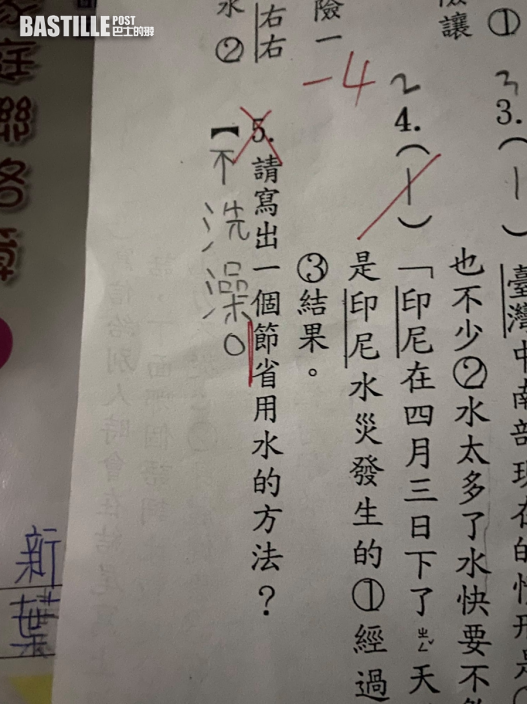 BASTILLE POST
巴士的報
①
險讓
3
3.(1)臺灣中南部現在的情形是
也不少②水太多了水快要不
2
4.(1)「印尼在四月三日下了ㄓㄥˇ天
是印尼水災發生的①經過
③結果。
險一
-4
右右
水②
5.請寫出一個節省用水的方法？
【不洗澡。
家庭聯絡簿
新葉